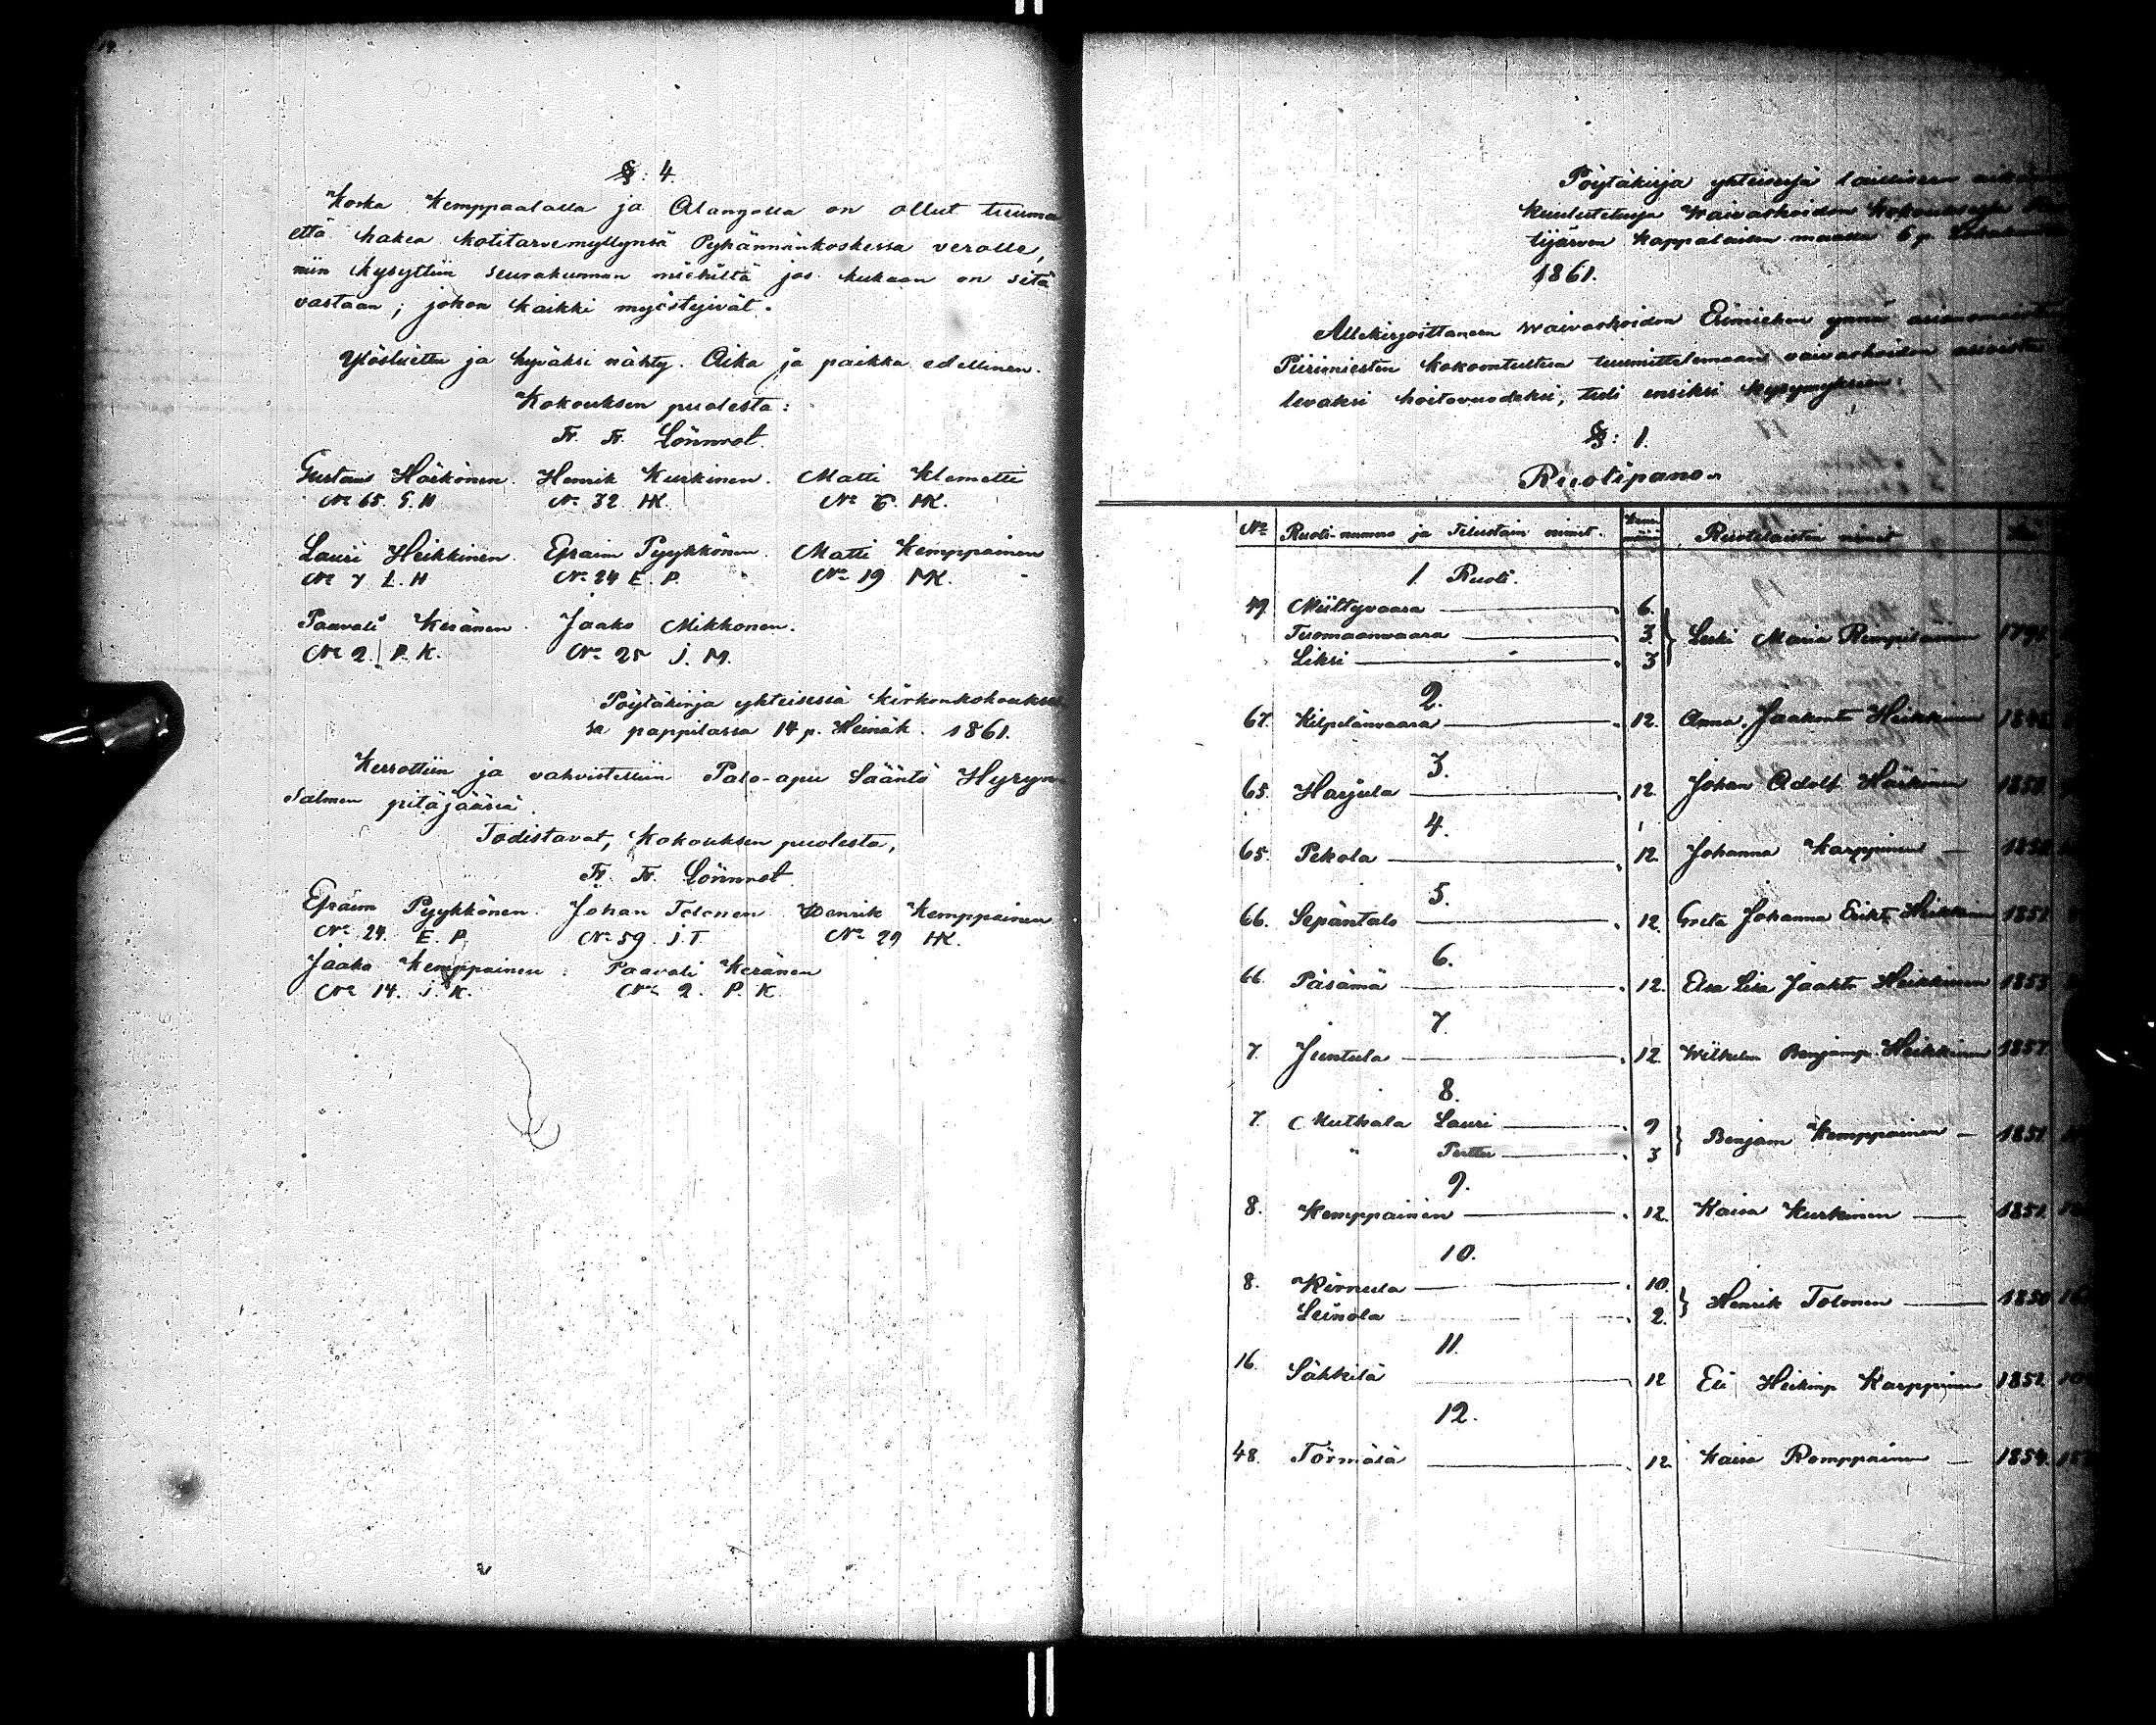 §: 4.
Koska Kemppaalalla ja Alangolla on ollut tuuma
että hakea kotitarvemyllynsä Pyhännänkoskessa verolle,
niin kysyttiin seurakunnan miehiltä jos kukaan on sitä
vastaan; johon kaikki myöstyivät.
Ylösluettu ja hyväksi nähty. Aika ja paikka edellinen.
Kokouksen puolesta:
Fr. Fr. Lönnrot.
Gustav Härkönen. Henrik Kurkinen. Matti Klemetti
No 65. G. H No 32. HK. No 6. MK.
Lauri Heikkinen. Efraim Pyykkönen. Matti Kemppainen
No 7 L. H No 24 E. P. No 19 MK.
Paavali Keränen. Jaako Mikkonen.
No 2. P. K. No 25 J. M.
Pöytäkirja yhteisessä kirkonkokoukses
sa pappilassa 14 p. Heinäk. 1861.
Kerrottiin ja vahvistettiin Palo-apu Sääntö Hyryn
salmen pitäjäässä.
Todistavat, Kokouksen puolesta,
Fr. Fr. Lönnrot.
Efraim Pyykkönen. Johan Tolonen. Henrik Kemppainen
No 24. E. P. No 59. J. T. No 29 HK.
Jaako Kemppainen. Paavali Keränen
No 14. J. K. No 2. P. K.
Pöytäkirja yhteisessä laillisesen
kuulutetussa Waivashoidon kokouksessa
tijärven kappalaisen maassa 6 p.
1861.
Allekirjoittaneen waivashoidon Esimiehen ynnä
Piirimiesten kokoontultua tuumittelemaan vaivashoidon
levaksi hoitovuodeksi, tuli ensiksi kysymykseen:
§: 1.
Ruotipano.
No Ruoti-numero ja Tilustain nimet. Ruotilaisten nimet
1. Ruoti.
49. Miiltyvaara 6.
Tuomaanvaara 3. Leski Maria Rempiläinen 1791.
Liksi 3
2.
67. Kilpelänvaara 12. Anna Jaakont. Heikkinen
3.
65. Harjula 12. Johan Adolf Härkönen 1850.
4.
65. Pekola 12. Johanna Karppinen
5.
66. Sepäntalo 12. Greta Johanna Erikt. Heikkinen 1851.
6.
66. Päsämä 12. Elsa Lisa Jaakt. Heikkinen 1853
7.
7. Juntula 12. Wilhelm Benjamp. Heikkinen 1857.
8.
7. Mutkala Lauri 9
" Perttu 3 Benjam Kemppainen 1851.
9.
8. Kemppainen 12. Kaisa Kurkinen 1851.
10.
8. Kirnula 10.
Leinola 2. Henrik Tolonen 1850
11.
16. Säkkilä 12 Eli Heikinp Karppinen 1852
12.
48. Törmälä 12. Kaisa Romppainen 1854.